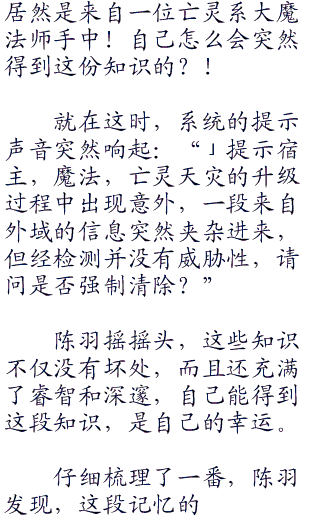 居然是来自一位亡灵系大魔
法师手中！自己怎么会突然
得到这份知识的？！
就在这时，系统的提示
声音突然响起：“」提示宿
主，魔法，亡灵天灾的升级
过程中出现意外，一段来自
外域的信息突然夹杂进来，
但经检测并没有威胁性，请
问是否强制清除？”
陈羽摇摇头，这些知识
不仅没有坏处，而且还充满
了睿智和深邃，自己能得到
这段知识，是自己的幸运。
仔细梳理了一番，陈羽
发现，这段记忆的